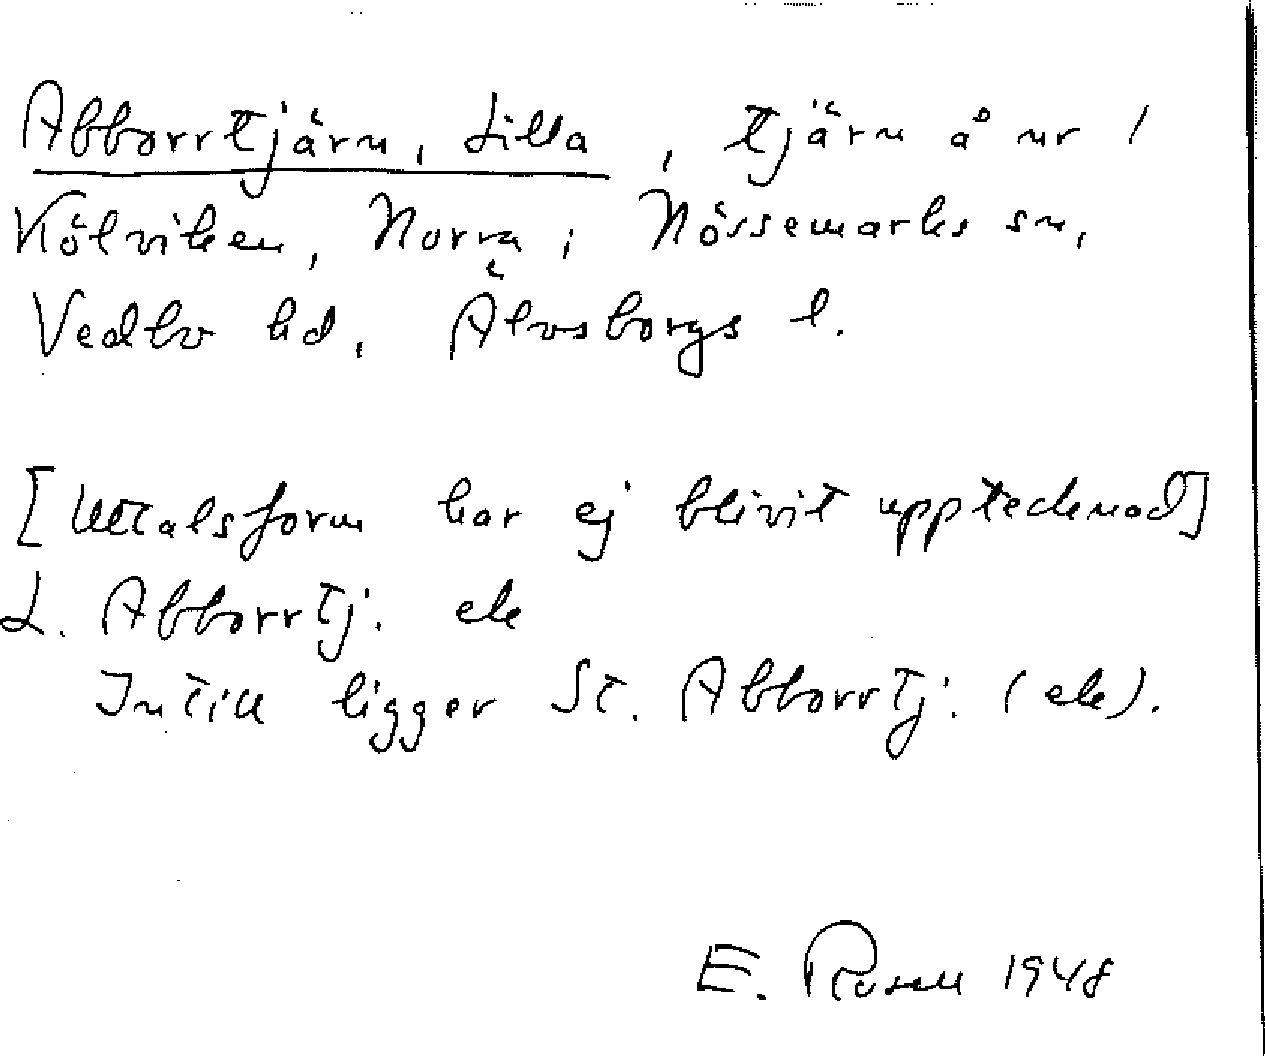 Abborrtjärn, Lilla, tjärn å nr 1
Kölviken, Norra i Nössemarks sn,
Vedbo hd, Älvsborgs l.
[Uttalsform har ej blivit upptecknad]
L. Abborrtj: ek
Intill ligger St. Abborrtj: (ek).
E. Rosell 1948